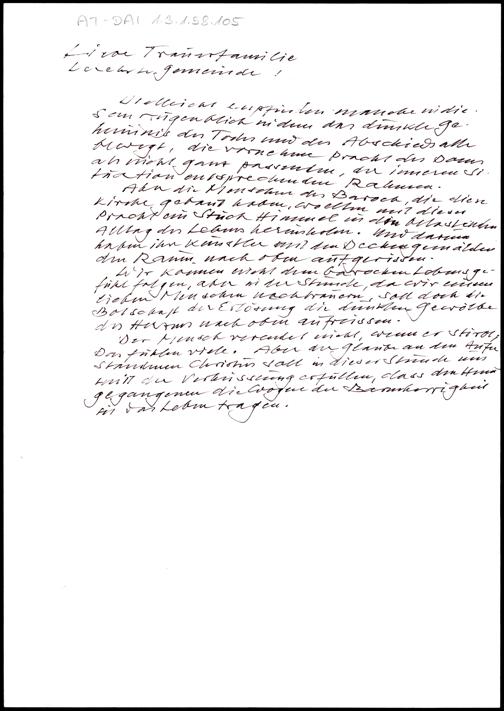 A7-DAI 1.3.1.98.105
Liebe Trauerfamilie
Verehrte Gemeinde!
Vielleicht empfinden manche in die-
sem Augenblick, in dem das dunkle Ge-
heimnis des Todes und des Abschieds alle
bewegt, die vornehme Pracht des Doms
als nicht ganz passenden, der inneren Si-
tuation entsprechenden Rahmen.
Aber die Menschen des Barock, die diese
Kirche gebaut haben, wollten mit dieser
Pracht ein Stück Himmel in den belastenden
Alltag des Lebens hereinholen. Und darum
haben ihre Künstler mit den Deckengemälden
den Raum nach oben aufgerissen.
Wir können nicht dem barocken Lebensge-
fühl folgen, aber in der Stunde, da wir einem
lieben Menschen nachtrauern, soll doch die
Botschaft der Erlösung die dunklen Gewölbe
des Herzens nach oben aufreissen.
Der Mensch verendet nicht, wenn er stirbt,
Das fühlen viele. Aber der Glaube an den Aufer
standenen Christus soll in dieser Stunde uns
mit der Verheissung erfüllen, dass den Heim
gegangenen die Wogen der Barmherzigkeit
in das Leben tragen.